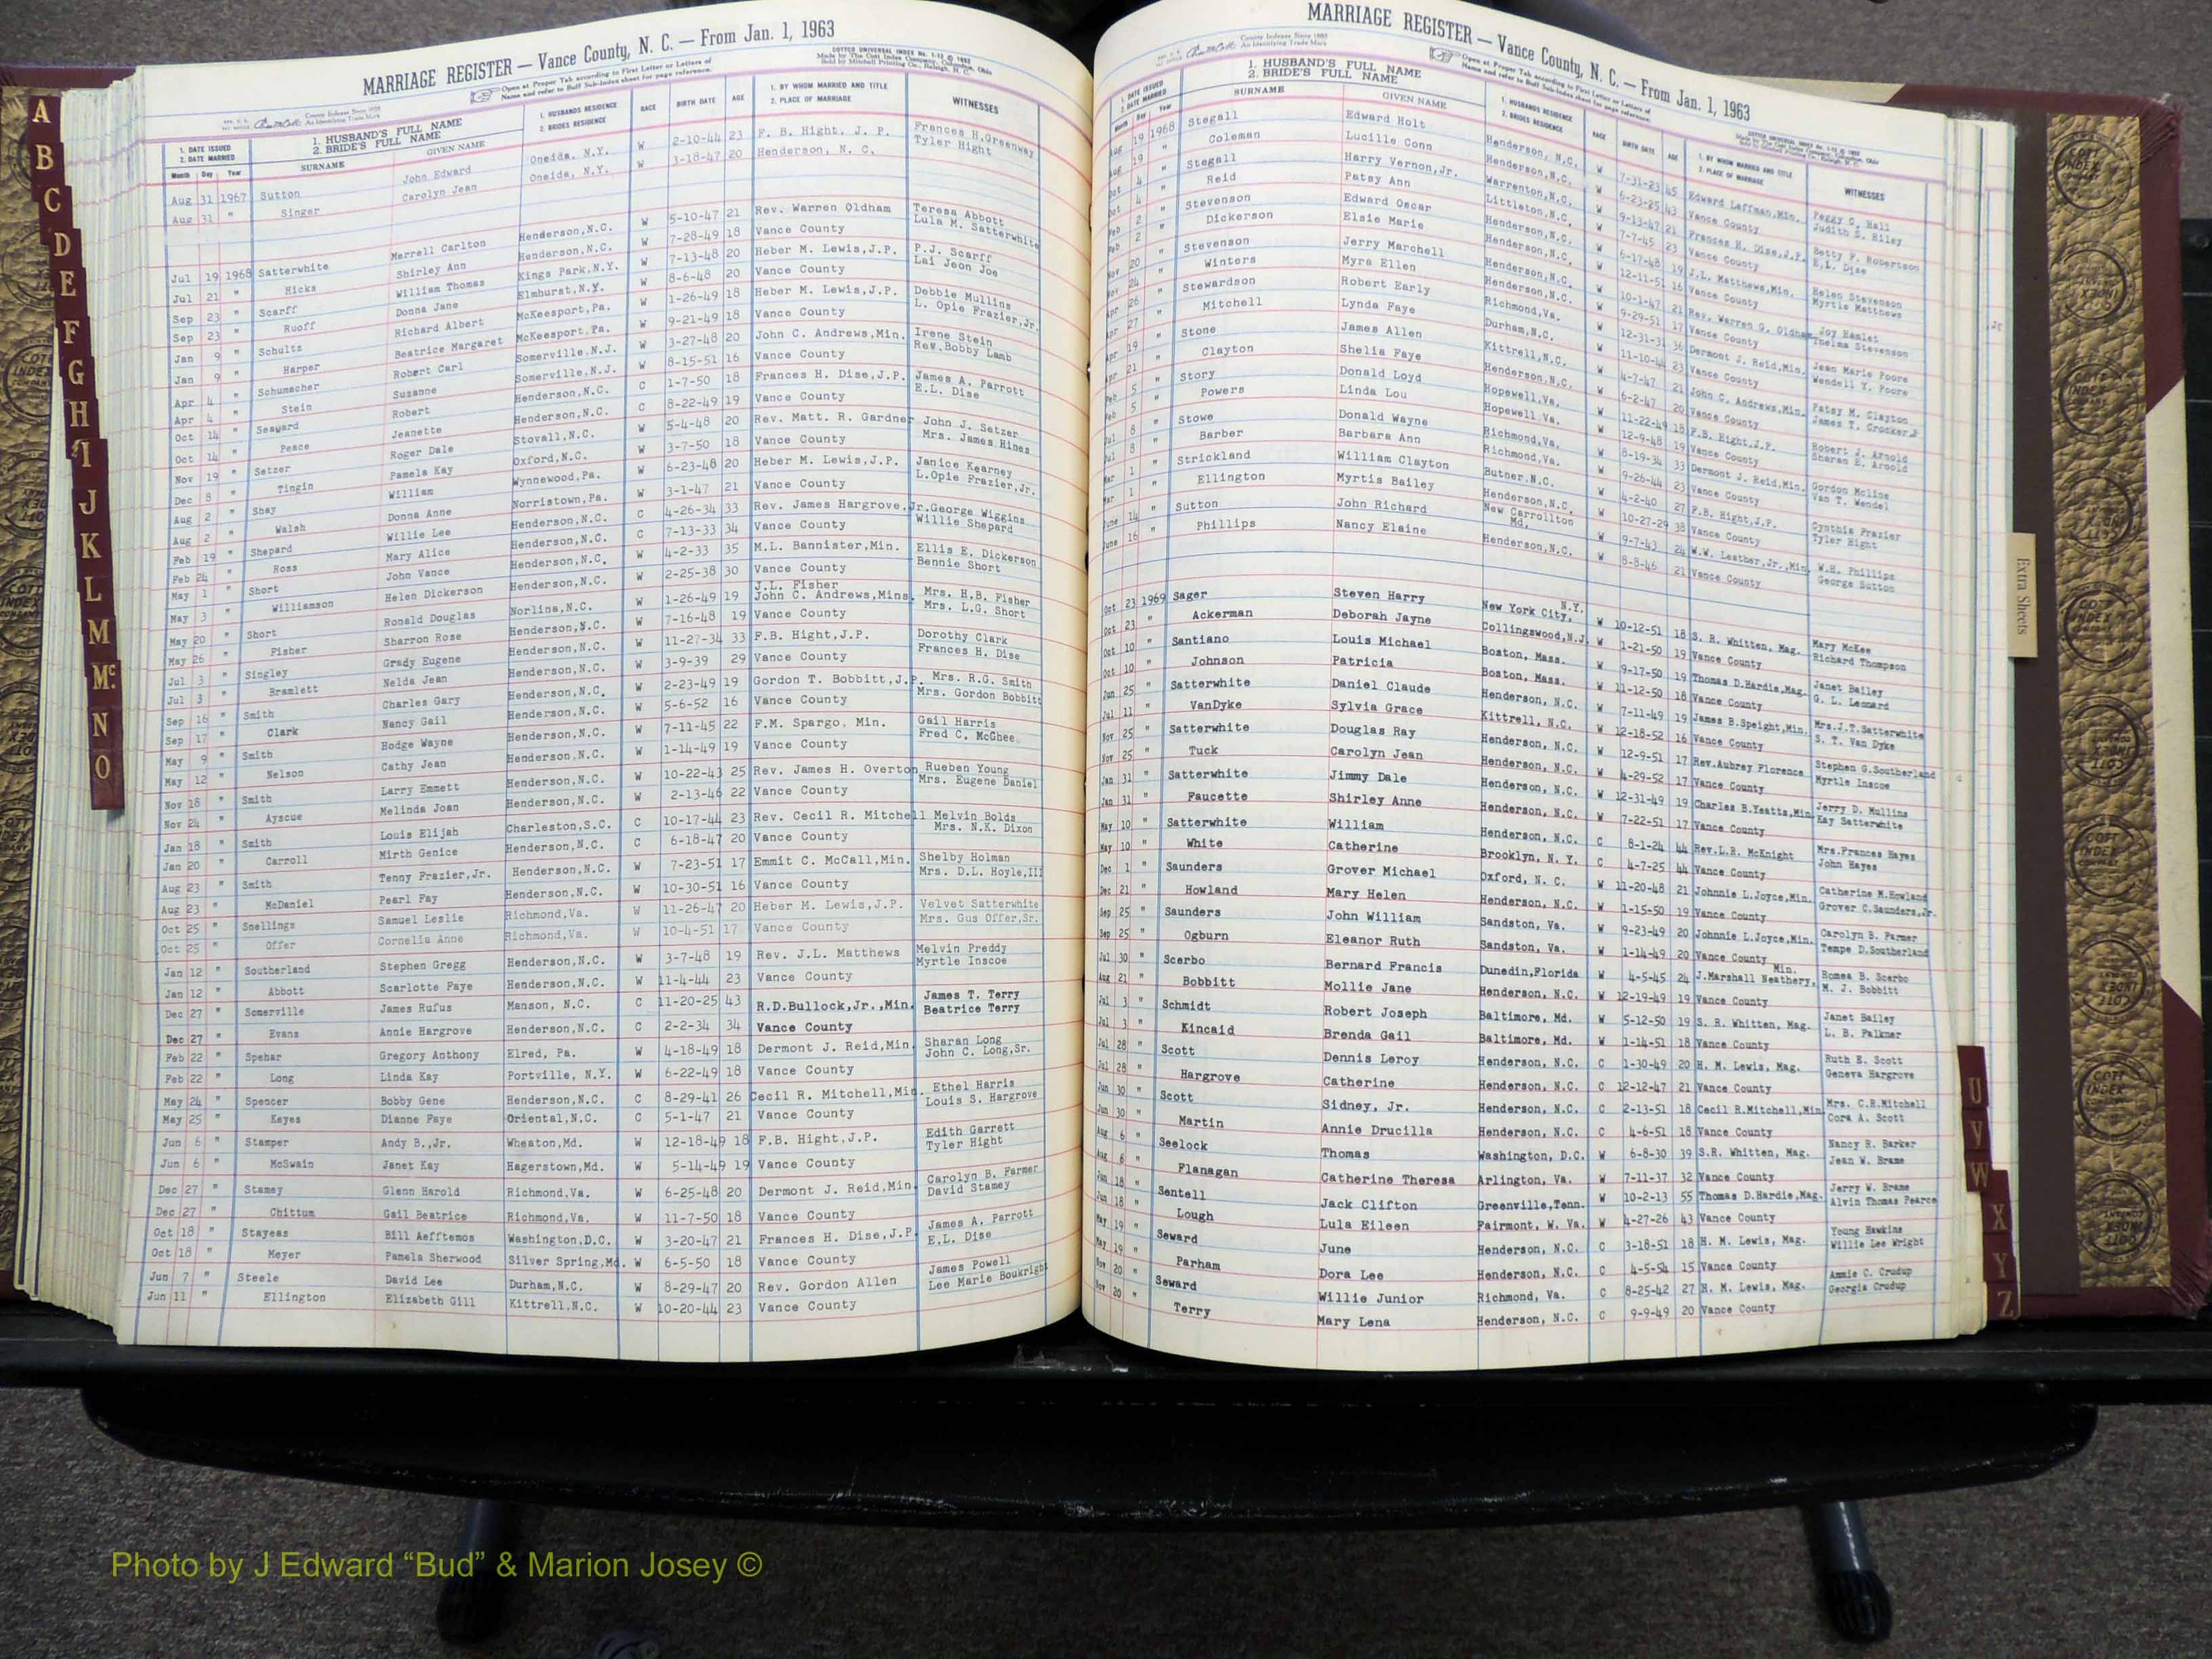 MARRIAGE REGISTER — Vance County, N. C. — From Jan. 1, 1963
Open at Proper Tab according to First Letter or Letters of
Name and refer to Buff Sub-Index sheet for page reference.
COTTCO UNIVERSAL INDEX
Made by The Cott Index Company, Columbus, Ohio
Sold by Mitchell Printing Co., Raleigh, N. C.
County Indexes Since 1888
An Identifying Trade Mark
1. DATE ISSUED
2. DATE MARRIED
Month Day Year
1. HUSBAND'S FULL NAME
2. BRIDE'S FULL NAME
SURNAME GIVEN NAME
1. HUSBANDS RESIDENCE
2. BRIDES RESIDENCE
RACE BIRTH DATE AGE
1. BY WHOM MARRIED AND TITLE
2. PLACE OF MARRIAGE
WITNESSES
Aug 31 1967 Sutton John Edward Oneida, N.Y. W 2-10-44 23 F. B. Hight, J. P. Frances H.Greenway
Aug 31 " Singer Carolyn Jean Oneida, N.Y. W 3-18-47 20 Henderson, N. C. Tyler Hight
Jul 19 1968 Satterwhite Merrell Carlton Henderson,N.C. W 5-10-47 21 Rev. Warren Oldham Teresa Abbott
Jul 21 " Hicks Shirley Ann Henderson,N.C. W 7-28-49 18 Vance County Lula M. Satterwhite
Sep 23 " Scarff William Thomas Kings Park,N.Y. W 7-13-48 20 Heber M. Lewis,J.P. P.J. Scarff
Sep 23 " Ruoff Donna Jane Elmhurst,N.Y. W 8-6-48 20 Vance County Lai Jeon Joe
Jan 9 " Schultz Richard Albert McKeesport,Pa. W 1-26-49 18 Heber M. Lewis,J.P. Debbie Mullins
Jan 9 " Harper Beatrice Margaret McKeesport,Pa. W 9-21-49 18 Vance County L. Opie Frazier,Jr.
Apr 4 " Schumacher Robert Carl Somerville,N.J. W 3-27-48 20 John C. Andrews,Min. Irene Stein
Apr 4 " Stein Suzanne Somerville,N.J. W 8-15-51 16 Vance County Rev.Bobby Lamb
Oct 14 " Seaward Robert Henderson,N.C. C 1-7-50 18 Frances H. Dise,J.P. James A. Parrott
Oct 14 " Peace Jeanette Henderson,N.C. C 8-22-49 19 Vance County E.L. Dise
Nov 19 " Setzer Roger Dale Stovall,N.C. W 5-4-48 20 Rev. Matt. R. Gardner John J. Setzer
Dec 8 " Tingin Pamela Kay Oxford,N.C. W 3-7-50 18 Vance County Mrs. James Hines
Aug 2 " Shay William Wynnewood,Pa. W 6-23-48 20 Heber M. Lewis,J.P. Janice Kearney
Aug 2 " Walsh Donna Anne Norristown,Pa. W 3-1-47 21 Vance County L.Opie Frazier,Jr.
Feb 19 " Shepard Willie Lee Henderson,N.C. C 4-26-34 33 Rev. James Hargrove,Jr. George Wiggins
Feb 24 " Ross Mary Alice Henderson,N.C. C 7-13-33 34 Vance County Willie Shepard
May 1 " Short John Vance Henderson,N.C. W 4-2-33 35 M.L. Bannister,Min. Ellis E. Dickerson
May 3 " Williamson Helen Dickerson Henderson,N.C. W 2-25-38 30 Vance County Bennie Short
May 20 " Short Ronald Douglas Norlina,N.C. W 1-26-49 19 J.L. Fisher John C. Andrews,Mins. Mrs. H.B. Fisher
May 26 " Fisher Sharron Rose Henderson,N.C. W 7-16-48 19 Vance County Mrs. L.G. Short
Jul 3 " Singley Grady Eugene Henderson,N.C. W 11-27-34 33 F.B. Hight,J.P. Dorothy Clark
Jul 3 " Bramlett Nelda Jean Henderson,N.C. W 3-9-39 29 Vance County Frances H. Dise
Sep 16 " Smith Charles Gary Henderson,N.C. W 2-23-49 19 Gordon T. Bobbitt,J.P. Mrs. R.G. Smith
Sep 17 " Clark Nancy Gail Henderson,N.C. W 5-6-52 16 Vance County Mrs. Gordon Bobbitt
May 9 " Smith Hodge Wayne Henderson,N.C. W 7-11-45 22 F.M. Spargo, Min. Gail Harris
May 12 " Nelson Cathy Jean Henderson,N.C. W 1-14-49 19 Vance County Fred C. McGhee
Nov 18 " Smith Larry Emmett Henderson,N.C. W 10-22-43 25 Rev. James H. Overton Rueben Young
Nov 24 " Ayscue Melinda Joan Henderson,N.C. W 2-13-46 22 Vance County Mrs. Eugene Daniel
Jan 18 " Smith Louis Elijah Charleston,S.C. C 10-17-44 23 Rev. Cecil R. Mitchell Melvin Bolds
Jan 20 " Carroll Mirth Genice Henderson,N.C. C 6-18-47 20 Vance County Mrs. N.K. Dixon
Aug 23 " Smith Tenny Frazier,Jr. Henderson,N.C. W 7-23-51 17 Emmit C. McCall,Min. Shelby Holman
Aug 23 " McDaniel Pearl Fay Henderson,N.C. W 10-30-51 16 Vance County Mrs. D.L. Hoyle,III
Oct 25 " Snellings Samuel Leslie Richmond,Va. W 11-26-47 20 Heber M. Lewis,J.P. Velvet Satterwhite
Oct 25 " Offer Cornelia Anne Richmond,Va. W 10-4-51 17 Vance County Mrs. Gus Offer,Sr.
Jan 12 " Southerland Stephen Gregg Henderson,N.C. W 3-7-48 19 Rev. J.L. Matthews Melvin Preddy
Jan 12 " Abbott Scarlotte Faye Henderson,N.C. W 11-4-44 23 Vance County Myrtle Inscoe
Dec 27 " Somerville James Rufus Manson, N.C. C 11-20-25 43 R.D.Bullock,Jr.,Min. James T. Terry
Dec 27 " Evans Annie Hargrove Henderson,N.C. C 2-2-34 34 Vance County Beatrice Terry
Feb 22 " Spehar Gregory Anthony Elred, Pa. W 4-18-49 18 Dermont J. Reid,Min. Sharan Long
Feb 22 " Long Linda Kay Portville, N.Y. W 6-22-49 18 Vance County John C. Long,Sr.
May 24 " Spencer Bobby Gene Henderson,N.C. C 8-29-41 26 Cecil R. Mitchell,Min. Ethel Harris
May 25 " Keyes Dianne Faye Oriental,N.C. C 5-1-47 21 Vance County Louis S. Hargrove
Jun 6 " Stamper Andy B.,Jr. Wheaton,Md. W 12-18-49 18 F.B. Hight,J.P. Edith Garrett
Jun 6 " McSwain Janet Kay Hagerstown,Md. W 5-14-49 19 Vance County Tyler Hight
Dec 27 " Stamey Glenn Harold Richmond,Va. W 6-25-48 20 Dermont J. Reid,Min. Carolyn B. Farmer
Dec 27 " Chittum Gail Beatrice Richmond,Va. W 11-7-50 18 Vance County David Stamey
Oct 18 " Stayeas Bill Aefftemos Washington,D.C. W 3-20-47 21 Frances H. Dise,J.P. James A. Parrott
Oct 18 " Meyer Pamela Sherwood Silver Spring,Md. W 6-5-50 18 Vance County E.L. Dise
Jun 7 " Steele David Lee Durham,N.C. W 8-29-47 20 Rev. Gordon Allen James Powell
Jun 11 " Ellington Elizabeth Gill Kittrell,N.C. W 10-20-44 23 Vance County Lee Marie Boukright
MARRIAGE REGISTER — Vance County, N. C. — From Jan. 1, 1963
Open at Proper Tab according to First Letter or Letters of
Name and refer to Buff Sub-Index sheet for page reference.
County Indexes Since 1888
An Identifying Trade Mark
1. DATE ISSUED
2. DATE MARRIED
Month Day Year
1. HUSBAND'S FULL NAME
2. BRIDE'S FULL NAME
SURNAME GIVEN NAME
1. HUSBANDS RESIDENCE
2. BRIDES RESIDENCE
RACE BIRTH DATE AGE
1. BY WHOM MARRIED AND TITLE
2. PLACE OF MARRIAGE
WITNESSES
Aug 19 1968 Stegall Edward Holt Henderson, N.C. W 7-31-23 45 Edward Laffman,Min. Peggy C. Hall
Aug 19 " Coleman Lucille Conn Henderson,N.C. W 6-23-25 43 Vance County Judith S. Riley
Oct 4 " Stegall Harry Vernon,Jr. Warrenton,N.C. W 9-13-47 21 Frances H. Dise,J.P. Betty F. Robertson
Oct 4 " Reid Patsy Ann Littleton,N.C. W 7-7-45 23 Vance County E.L. Dise
Feb 2 " Stevenson Edward Oscar Henderson,N.C. W 6-17-48 19 J.L. Matthews,Min. Helen Stevenson
Feb 2 " Dickerson Elsie Marie Henderson,N.C. W 12-11-51 16 Vance County Myrtle Matthews
Nov 20 " Stevenson Jerry Marchell Henderson,N.C. W 10-1-47 21 Rev. Warren G. Oldham Joy Hamlet
Nov 24 " Winters Myra Ellen Henderson,N.C. W 9-29-51 17 Vance County Thelma Stevenson
Apr 26 " Stewardson Robert Early Richmond,Va. W 12-31-31 36 Dermont J. Reid,Min. Jean Marie Poore
Apr 27 " Mitchell Lynda Faye Durham,N.C. W 11-10-44 23 Vance County Wendell Y. Poore
Apr 19 " Stone James Allen Kittrell,N.C. W 4-7-47 21 John C. Andrews,Min. Patsy M. Clayton
Apr 21 " Clayton Shelia Faye Henderson,N.C. W 6-2-47 20 Vance County James T. Crocker
Feb 5 " Story Donald Loyd Hopewell,Va. W 11-22-49 18 F.B. Hight,J.P. Robert J. Arnold
Feb 5 " Powers Linda Lou Hopewell,Va. W 12-9-48 19 Vance County Sharan E. Arnold
Jul 8 " Stowe Donald Wayne Richmond,Va. W 8-19-34 33 Dermont J. Reid,Min. Gordon Moline
Jul 8 " Barber Barbara Ann Richmond,Va. W 9-26-44 23 Vance County Van T. Wendel
Mar 1 " Strickland William Clayton Butner,N.C. W 4-2-40 27 F.B. Hight,J.P. Cynthia Frazier
Mar 1 " Ellington Myrtis Bailey Henderson,N.C. W 10-27-29 38 Vance County Tyler Hight
June 14 " Sutton John Richard New Carrollton Md. W 9-7-43 24 W.W. Leather,Jr.,Min. W.H. Phillips
June 16 " Phillips Nancy Elaine Henderson,N.C. W 8-8-46 21 Vance County George Sutton
Oct 23 1969 Sager Steven Harry New York City, N.Y. W 10-12-51 18 S. R. Whitten, Mag. Mary McKee
Oct 23 " Ackerman Deborah Jayne Collingswood,N.J. W 1-21-50 19 Vance County Richard Thompson
Oct 10 " Santiano Louis Michael Boston, Mass. W 9-17-50 19 Thomas D.Hardie,Mag. Janet Bailey
Oct 10 " Johnson Patricia Boston, Mass. W 11-12-50 18 Vance County G. L. Leonard
Jun 25 " Satterwhite Daniel Claude Henderson, N.C. W 7-11-49 19 James B.Speight,Min. Mrs.J.T.Satterwhite
Jul 11 " VanDyke Sylvia Grace Kittrell, N.C. W 12-18-52 16 Vance County S. T. Van Dyke
Nov 25 " Satterwhite Douglas Ray Henderson, N.C. W 12-9-51 17 Rev.Aubrey Florence Stephen G.Southerland
Nov 25 " Tuck Carolyn Jean Henderson, N.C. W 4-29-52 17 Vance County Myrtle Inscoe
Jan 31 " Satterwhite Jimmy Dale Henderson, N.C. W 12-31-49 19 Charles B.Yeatts,Min. Jerry D. Mullins
Jan 31 " Faucette Shirley Anne Henderson, N.C. W 7-22-51 17 Vance County Kay Satterwhite
May 10 " Satterwhite William Henderson, N.C. C 8-1-24 44 Rev.L.R. McKnight Mrs.Frances Hayes
May 10 " White Catherine Brooklyn, N. Y. C 4-7-25 44 Vance County John Hayes
Dec 1 " Saunders Grover Michael Oxford, N. C. W 11-20-48 21 Johnnie L.Joyce,Min. Catherine M.Howland
Dec 21 " Howland Mary Helen Henderson, N.C. W 1-15-50 19 Vance County Grover C.Saunders,Jr.
Sep 25 " Saunders John William Sandston, Va. W 9-23-49 20 Johnnie L.Joyce,Min. Carolyn B. Farmer
Sep 25 " Ogburn Eleanor Ruth Sandston, Va. W 1-14-49 20 Vance County Tempe D.Southerland
Jul 30 " Scerbo Bernard Francis Dunedin,Florida W 4-5-45 24 J.Marshall Neathery, Min. Romea B. Scerbo
Aug 21 " Bobbitt Mollie Jane Henderson, N.C. W 12-19-49 19 Vance County M. J. Bobbitt
Jul 3 " Schmidt Robert Joseph Baltimore, Md. W 5-12-50 19 S. R. Whitten, Mag. Janet Bailey
Jul 3 " Kincaid Brenda Gail Baltimore, Md. W 1-14-51 18 Vance County L. B. Falkner
Jul 28 " Scott Dennis Leroy Henderson, N.C. C 1-30-49 20 H. M. Lewis, Mag. Ruth E. Scott
Jul 28 " Hargrove Catherine Henderson, N.C. C 12-12-47 21 Vance County Geneva Hargrove
Jun 30 " Scott Sidney, Jr. Henderson, N.C. C 2-13-51 18 Cecil R.Mitchell,Min Mrs. C.R.Mitchell
Jun 30 " Martin Annie Drucilla Henderson, N.C. C 4-6-51 18 Vance County Cora A. Scott
Aug 6 " Seelock Thomas Washington, D.C. W 6-8-30 39 S.R. Whitten, Mag. Nancy R. Barker
Aug 6 " Flanagan Catherine Theresa Arlington, Va. W 7-11-37 32 Vance County Jean W. Brame
Jun 18 " Sentell Jack Clifton Greenville,Tenn. W 10-2-13 55 Thomas D.Hardie,Mag. Jerry W. Brame
Jun 18 " Lough Lula Eileen Fairmont, W. Va. W 4-27-26 43 Vance County Alvin Thomas Pearce
May 19 " Seward June Henderson, N.C. C 3-18-51 18 H. M. Lewis, Mag. Young Hawkins
May 19 " Parham Dora Lee Henderson, N.C. C 4-5-54 15 Vance County Willie Lee Wright
Nov 20 " Seward Willie Junior Richmond, Va. C 8-25-42 27 H. M. Lewis, Mag. Annie C. Crudup
Nov 20 " Terry Mary Lena Henderson, N.C. C 9-9-49 20 Vance County Georgia Crudup
A
B
C
D
E
F
G
H
I
J
K
L
M
Mc
N
O
Extra Sheets
U
V
W
X
Y
Z
COTT INDEX COMPANY
Photo by J Edward “Bud” & Marion Josey ©